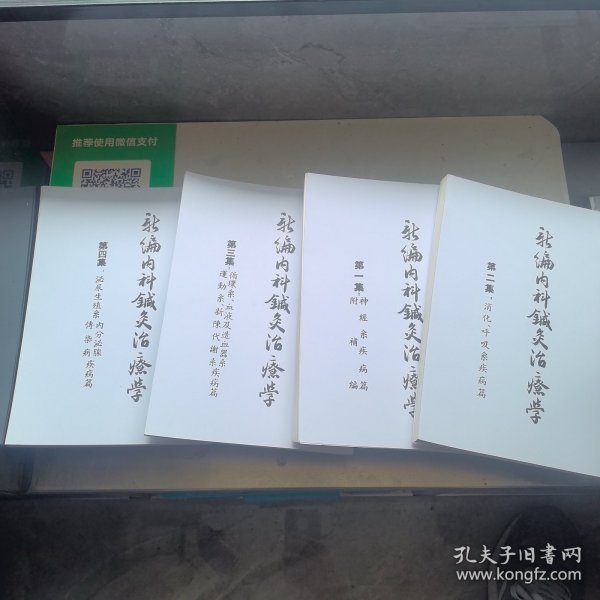 推荐使用微信支付
新编内科鍼灸治療学
第四集：泌尿生殖系内分泌腺
傳染病疾病篇
新编内科鍼灸治療学
第三集：循環系、血液及造血器系
運動系、新陳代謝系疾病篇
新编内科鍼灸治療学
第一集：神經系疾病篇
附補編
新编内科鍼灸治療学
第二集：消化、呼吸系疾病篇
孔夫子旧书网
www.kongfz.com